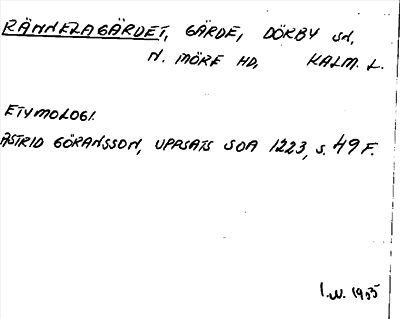 RÄNNELAGÄRDET, GÄRDE, DÖRBY SN,
N. MÖRE HD, KALM. L.
ETYMOLOGI.
ASTRID GÖRANSSON, UPPSATS SOA 1223, S. 49 F.
I.W. 1955